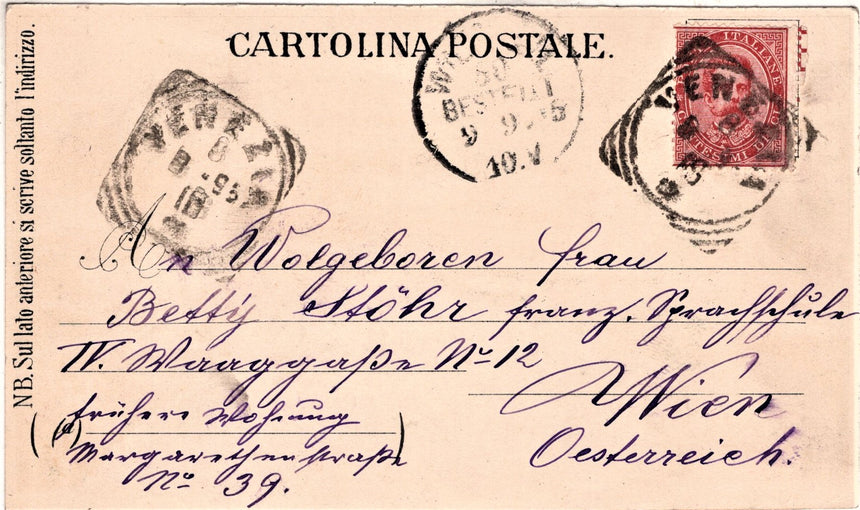 CARTOLINA POSTALE.
NB. Sul lato anteriore si scrive soltanto l'indirizzo.
VENEZIA
8
9
95
BESTELLT
9 9 95
10.V
ITALIANE
CENTESIMI DIECI
VENEZIA
An Wolgeboren frau
Betty Stöhr franz. Sprachschule
IV. Waaggaße No 12
Wien
Oesterreich.
(frühere Wohnung
Margarethenstraße)
No 39.